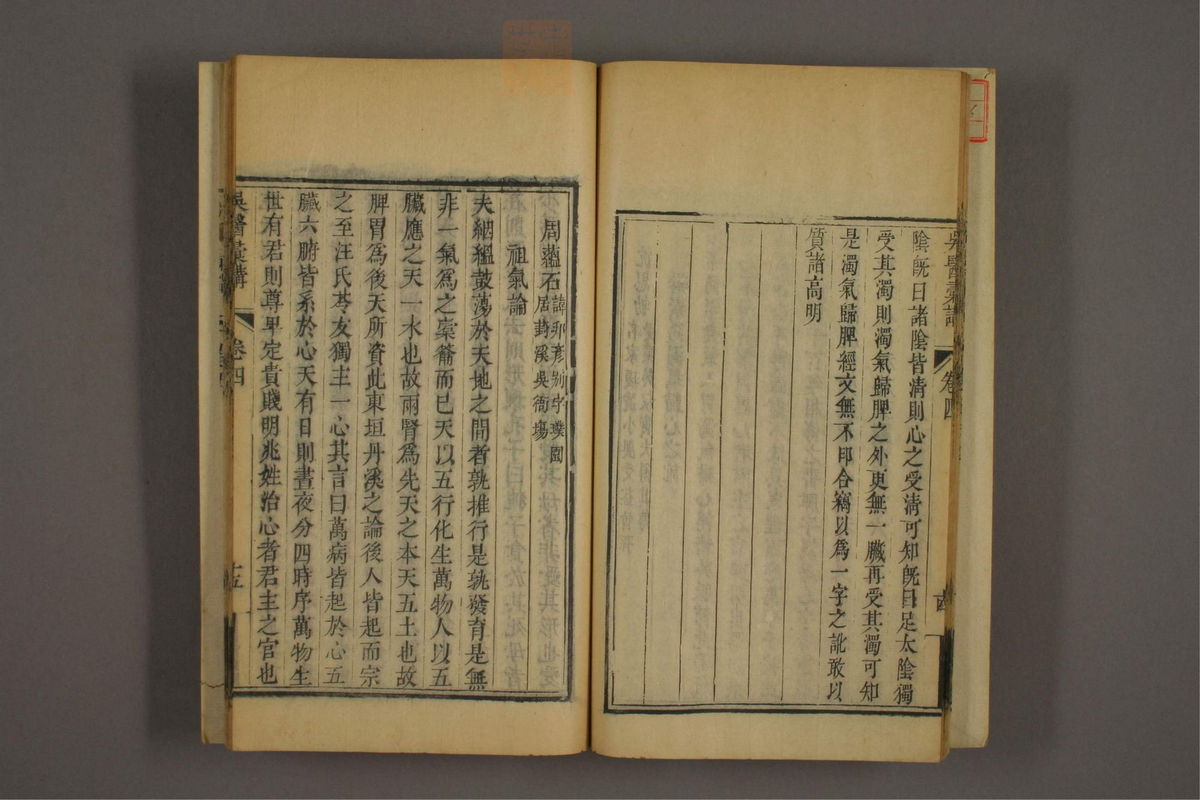 吳醫彙講
卷四
陰旣曰諸陰皆淸則心之受淸可知旣曰足太陰獨
受其濁則濁氣歸脾之外更無一臟再受其濁可知
是濁氣歸脾經文無不印合竊以爲一字之訛敢以
質諸高明
周蘊石
諱彥別字璞園
居葑溪吳衙場
祖氣論
夫絪縕鼓蕩於天地之間者孰推行是孰發育是無
非一氣爲之橐籥而已天以五行化生萬物人以五
臟應之天一水也故兩腎爲先天之本天五土也故
脾胃爲後天所資此東垣丹溪之論後人皆起而宗
之至汪氏苓友獨主一心其言曰萬病皆起於心五
臟六腑皆系於心天有日則晝夜分四時序萬物生
世有君則尊卑定貴賤明兆姓治心者君主之官也
吳醫彙講
卷四
十五